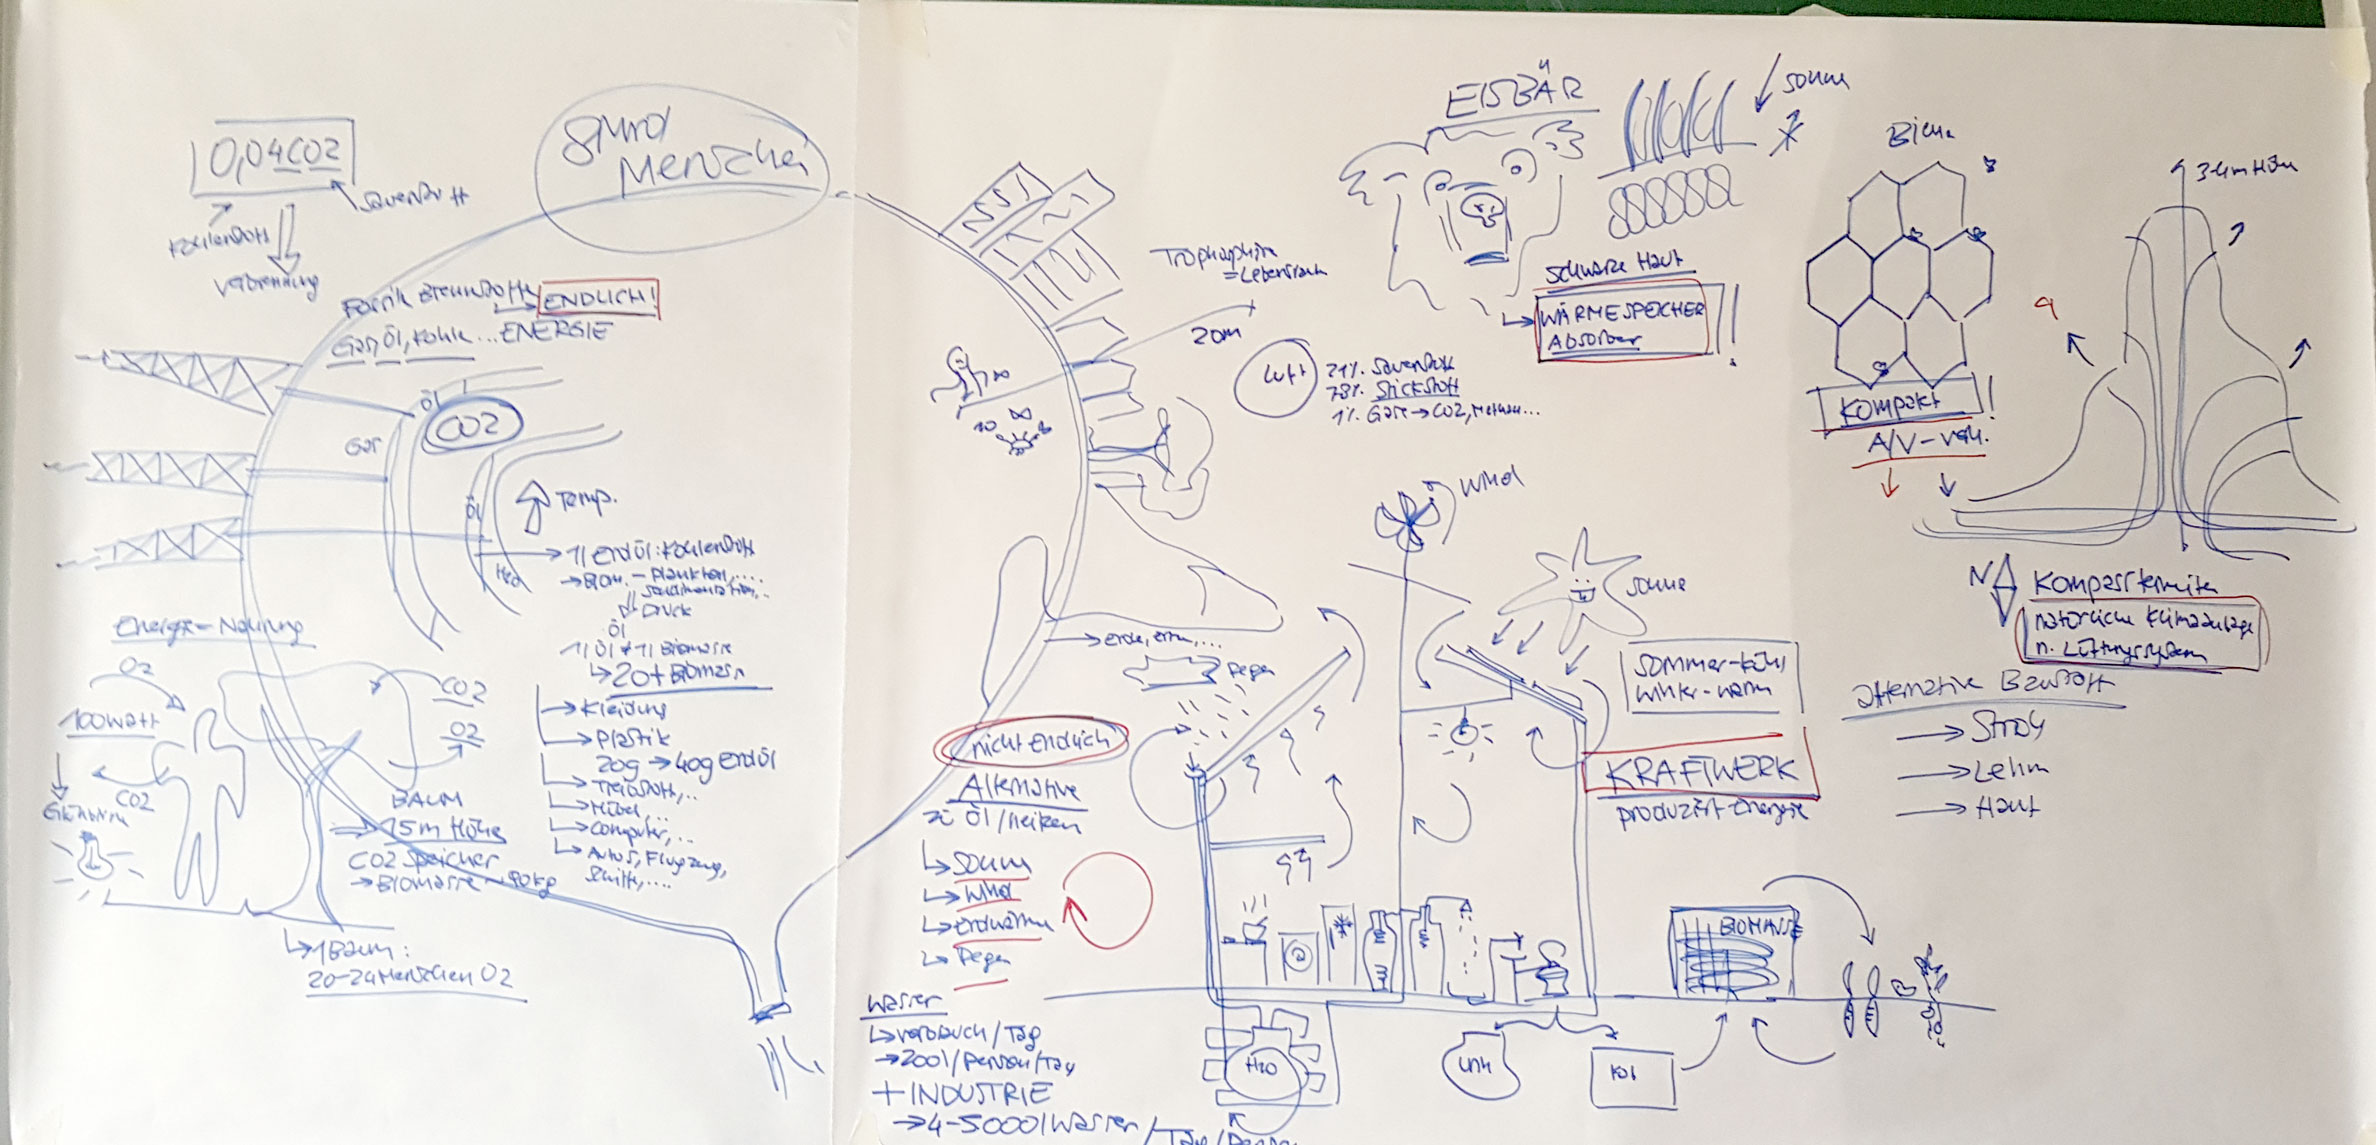 8 Mrd
Menschen
0,04 CO2
Sauerstoff
Kohlenstoff
Verbrennung
ENDLICH!
Gas, Öl, Kohle... ENERGIE
Öl
CO2
Gas
Öl
Temp.
1l Erdöl: Kohlenstoff
Druck
Öl
1l Öl ≠ 1l Biomasse
20t Biomasse
Kleidung
Plastik
20g → 40g Erdöl
Treibstoff,..
Möbel,..
Computer,..
Autos, Flugzeug,
Schiff,....
Energie = Nahrung
O2
100 Watt
CO2
CO2
O2
BAUM
15m Höhe
CO2 Speicher
→ Biomasse ~ 90kg
1 Baum:
20-24 Menschen O2
= Lebensraum
20m
Luft
21% Sauerstoff
78% Stickstoff
1% Gase → CO2, Methan...
EISBÄR
Sonne
schwarze Haut
WÄRMESPEICHER
Absorber
Biene
Kompakt!
A/V-Verh.
3-4m Höhe
N
Kompasstermiten
natürliche Klimaanlage
n. Lüftungssystem
alternative Baustoff
→ Stroh
→ Lehm
→ Hanf
Wind
Sonne
Regen
Sommer-kühl
Winter-warm
KRAFTWERK
produziert Energie
nicht endlich
Alternative
zu Öl/heizen
Sonne
Wind
Erdwärme
Regen
Wasser
Verbrauch/Tag
→ 200l/Person/Tag
+ INDUSTRIE
→ 4-5000l Wasser/Tag/Person
H2O
BIOMASSE